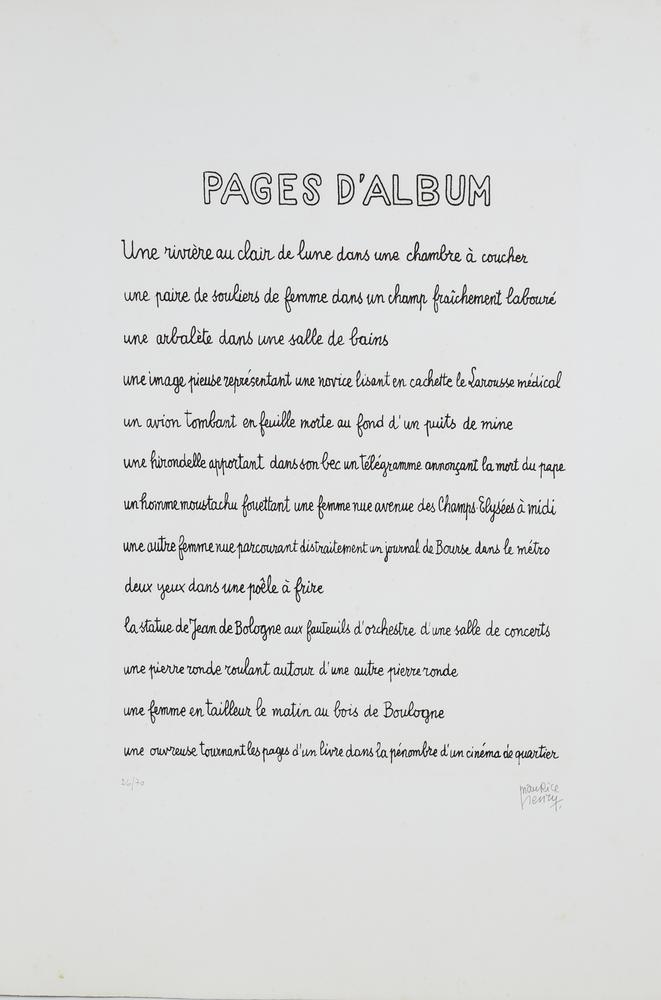 PAGES D'ALBUM
Une rivière au clair de lune dans une chambre à coucher
une paire de souliers de femme dans un champ fraîchement labouré
une arbalète dans une salle de bains
une image pieuse représentant une novice lisant en cachette le Larousse médical
un avion tombant en feuille morte au fond d'un puits de mine
une hirondelle apportant dans son bec un télégramme annonçant la mort du pape
un homme moustachu fouettant une femme nue avenue des Champs-Elysées à midi
une autre femme nue parcourant distraitement un journal de Bourse dans le métro
deux yeux dans une poêle à frire
la statue de Jean de Bologne aux fauteuils d'orchestre d'une salle de concerts
une pierre ronde roulant autour d'une autre pierre ronde
une femme en tailleur le matin au bois de Boulogne
une ouvreuse tournant les pages d'un livre dans la pénombre d'un cinéma de quartier
26/70
maurice henry